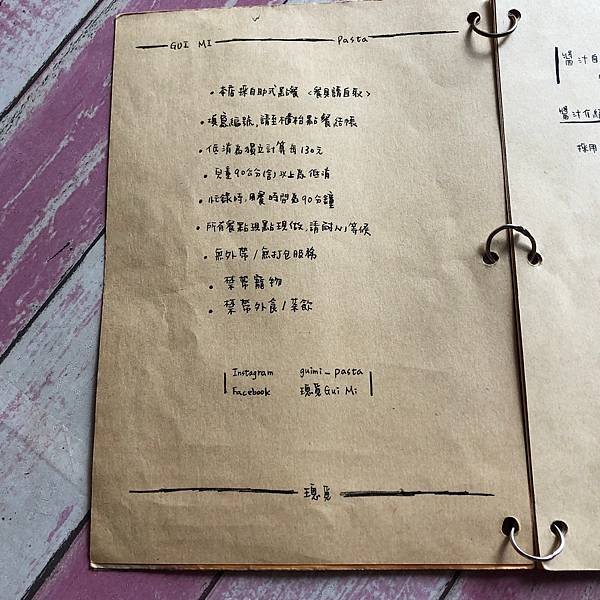 GUI MI Pasta
• 本店採自助式點餐 <餐具請自取>
• 填寫編號,請至櫃枱點餐結帳
• 低消為獨立計算每130元
• 兒童90公分(含)以上為低消
• 忙碌時,用餐時間為90分鐘
• 所有餐點現點現做,請耐心等候
• 無外帶/無打包服務
• 禁帶寵物
• 禁帶外食/菜飲
Instagram guimi_pasta
Facebook 瑰覓Gui Mi
瑰覓
醬汁自
醬汁介紹
採用